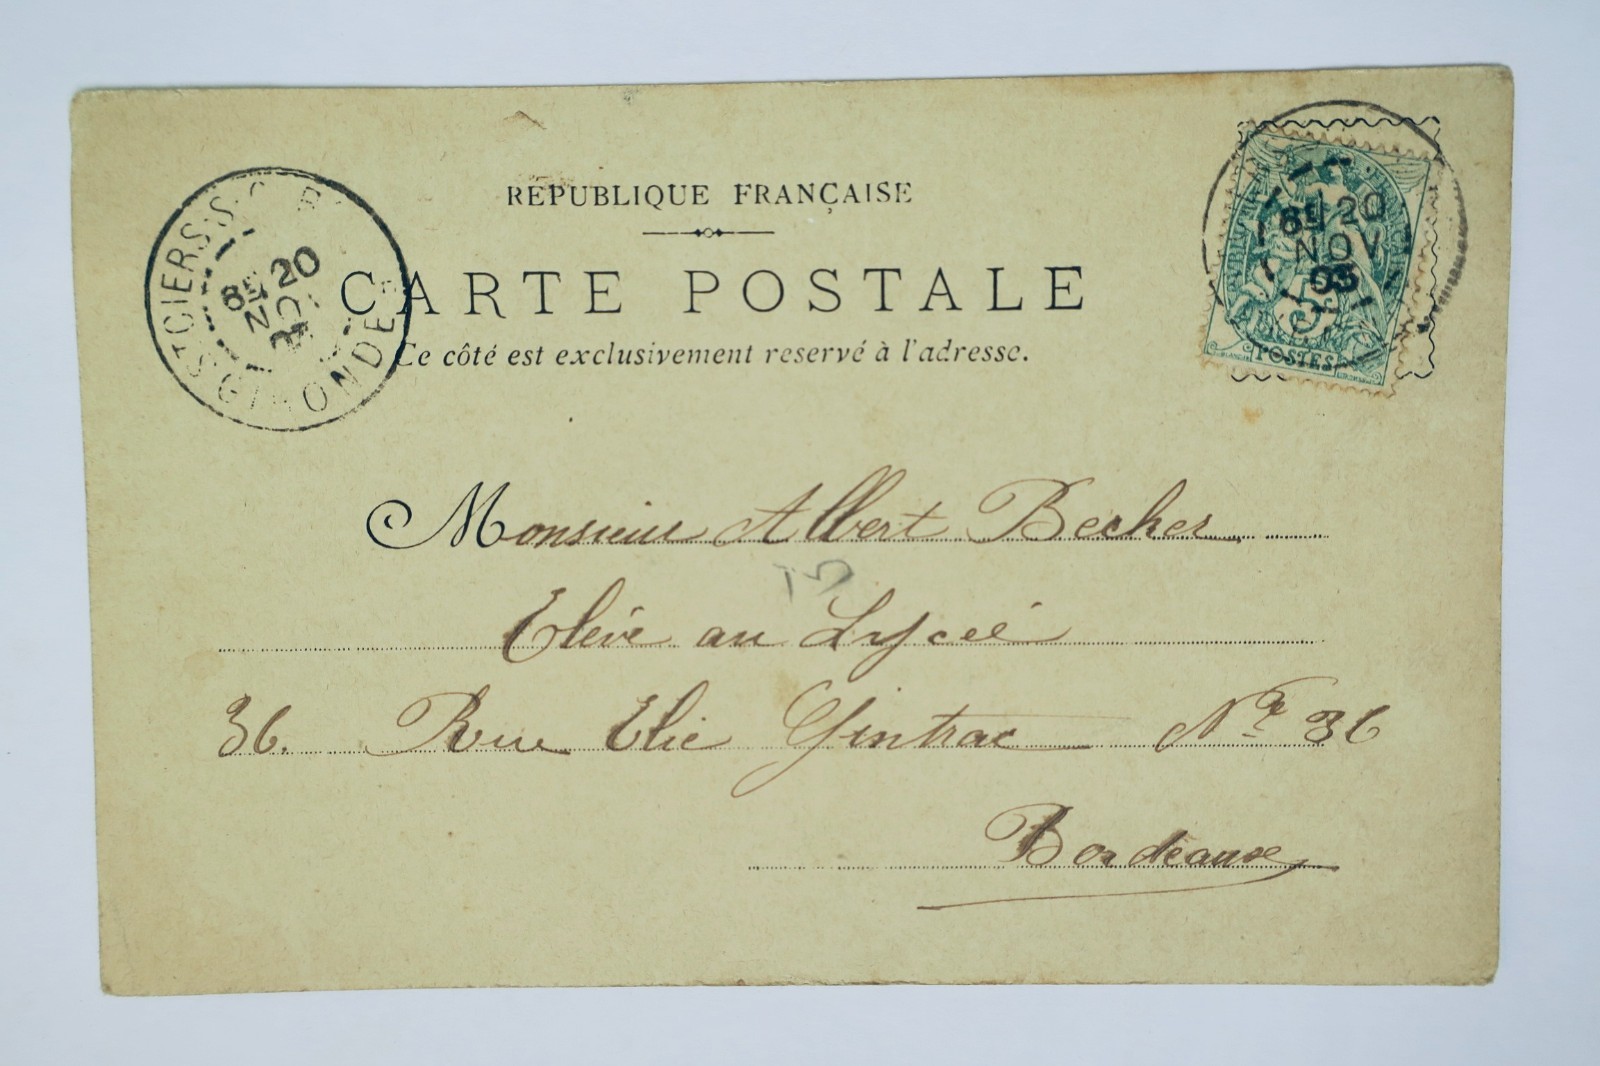 REPUBLIQUE FRANÇAISE
CARTE POSTALE
Ce côté est exclusivement reservé à l'adresse.
8E 20
NOV
GIRONDE
8E 20
NOV
03
5
POSTES
Monsieur Albert Becher
15
Elève au Lycée
36. Rue Elie Gintrac No 36
Bordeaux